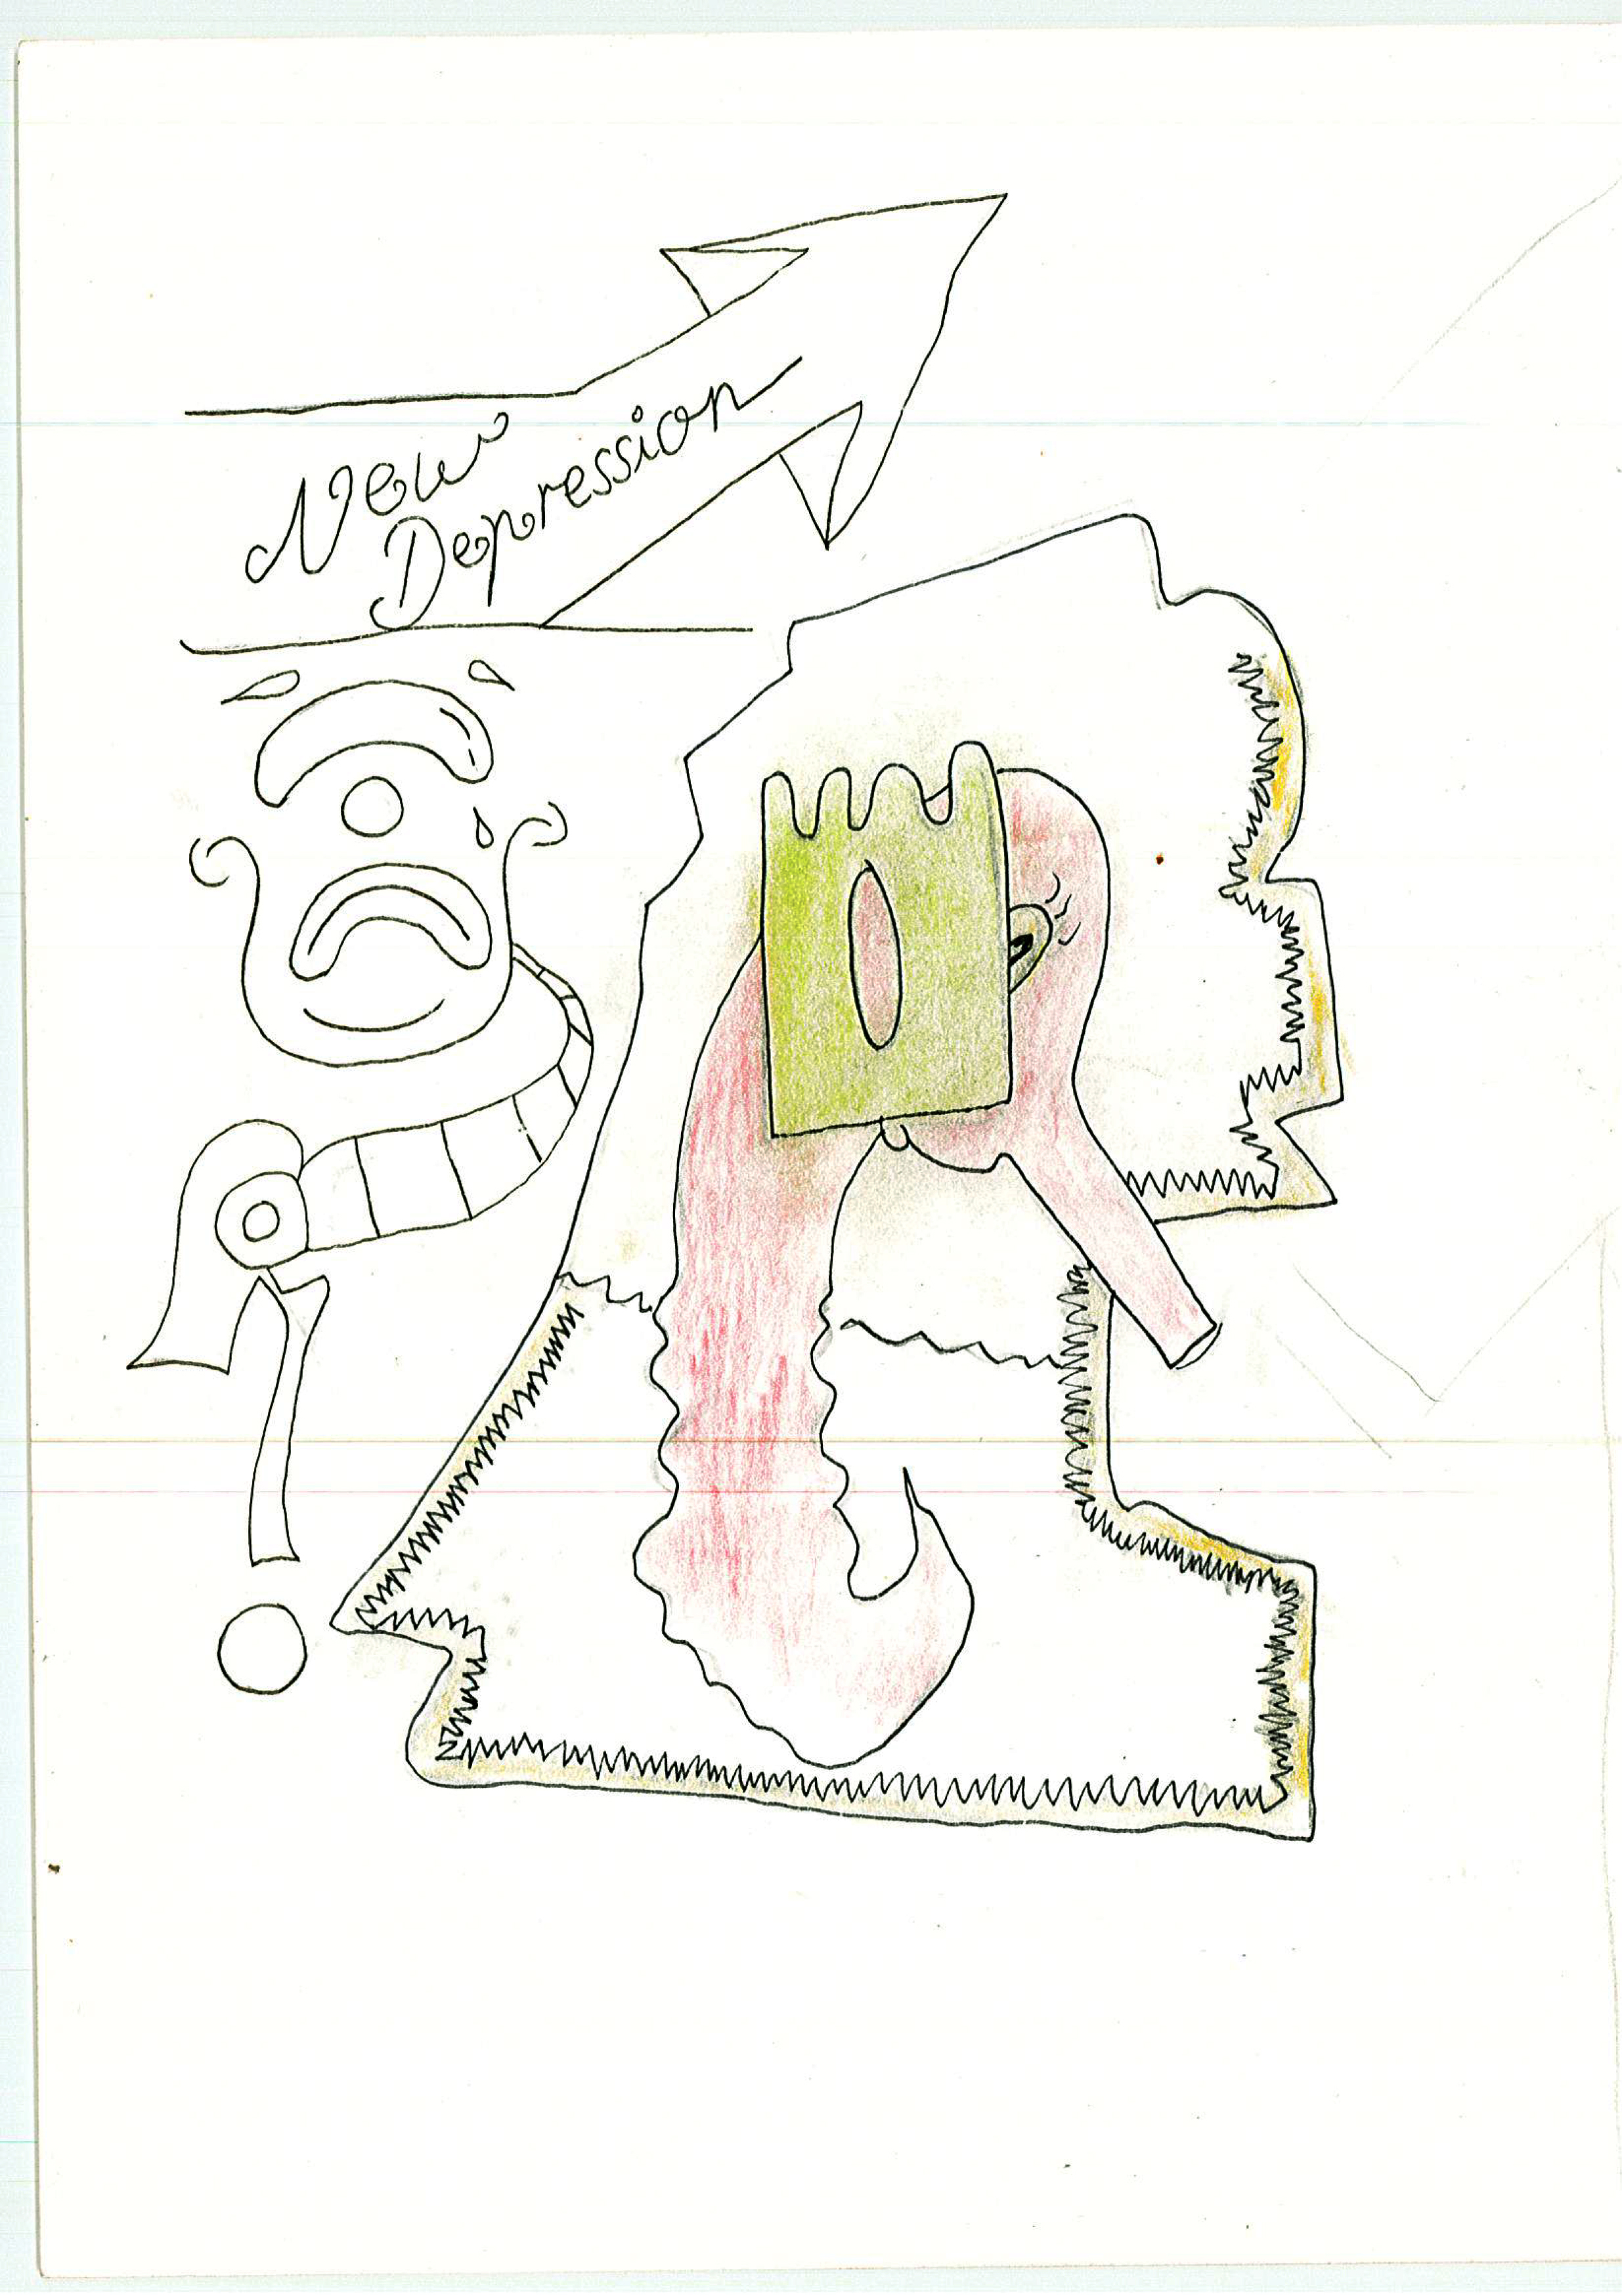 New
Depression